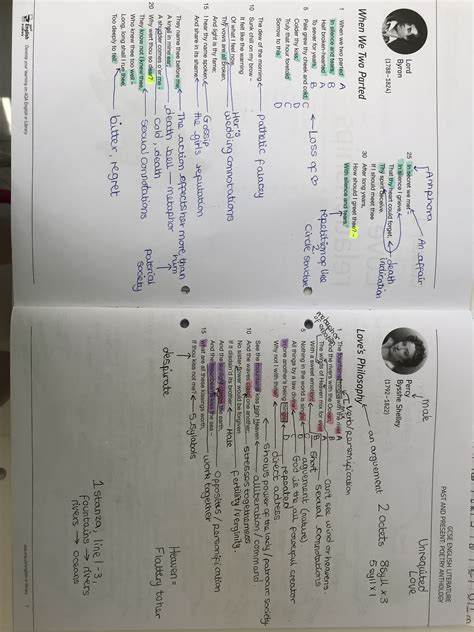 When We Two Parted
Lord
Byron
(1788–1824)
1 When we two parted A
In silence and tears, B
Half broken-hearted A
To sever for years, B
5 Pale grew thy cheek and cold, C
Colder thy kiss; D
Truly that hour foretold C
Sorrow to this. D
← Loss of
The dew of the morning ← Pathetic fallacy
10 Sunk chill on my brow –
It felt like the warning
Of what I feel now.
Thy vows are all broken, Wedding connotations
And light is thy fame;
15 I hear thy name spoken, Gossip
And share in its shame. the girls reputation
They name thee before me,
A knell in mine ear; death bell – metaphor
A shudder comes o'er me – cold, death
20 Why wert thou so dear?
They know not I knew thee, sexual connotations
Who knew thee too well –
Long, long shall I rue thee,
Too deeply to tell. bitter, regret
The action affects her more than him
paternal society
25 In secret we met –
In silence I grieve,
That thy heart could forget,
Thy spirit deceive.
If I should meet thee
30 After long years,
How should I greet thee? –
With silence and tears.
Anaphora
An affair
death
repetition of line 2:
circle structure
GCSE ENGLISH LITERATURE
PAST AND PRESENT: POETRY ANTHOLOGY
Love's Philosophy
Percy
Bysshe Shelley
(1792–1822)
male
Unrequited
Love
an arguement
2 octets
8syll x3
5syll x1
verb/personification
1 The fountains mingle with the river A
And the rivers with the Ocean, B
The winds of Heaven mix for ever A
With a sweet emotion; B
5 Nothing in the world is single; C
All things by a law divine D
In one another's being mingle. C
Why not I with thine? D
cant see wind or heavens
sexual connotations
Short
arguement (nature)
God is the all powerful creator
repeated
direct address
See the mountains kiss high Heaven
10 And the waves clasp one another;
No sister-flower would be forgiven
If it disdain'd its brother:
And the sunlight clasps the earth,
And the moonbeams kiss the sea –
15 What are all these kissings worth,
If thou kiss not me? ← 5 syllabols
alliteration / command
stresses togetherness
fertility/virginity
Hate
opposites / personification
work together
desparate
Heaven =
Flattery to her
1 stanza, line 1-3,
fountains → rivers
rivers → oceans